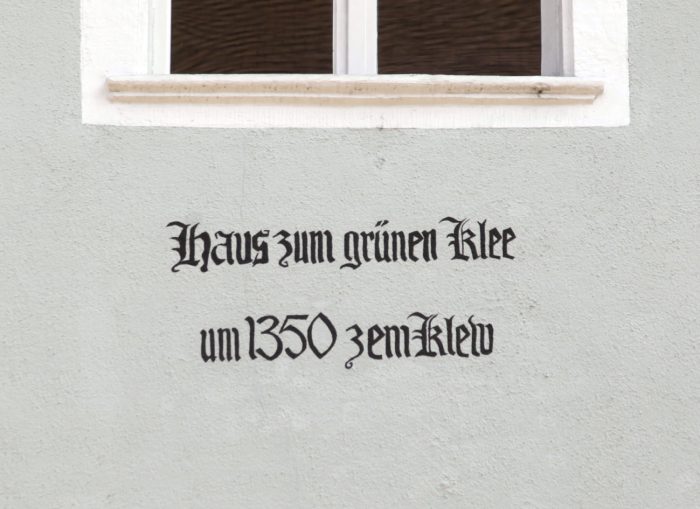 Haus zum grünen Klee
um 1350 zem Klew